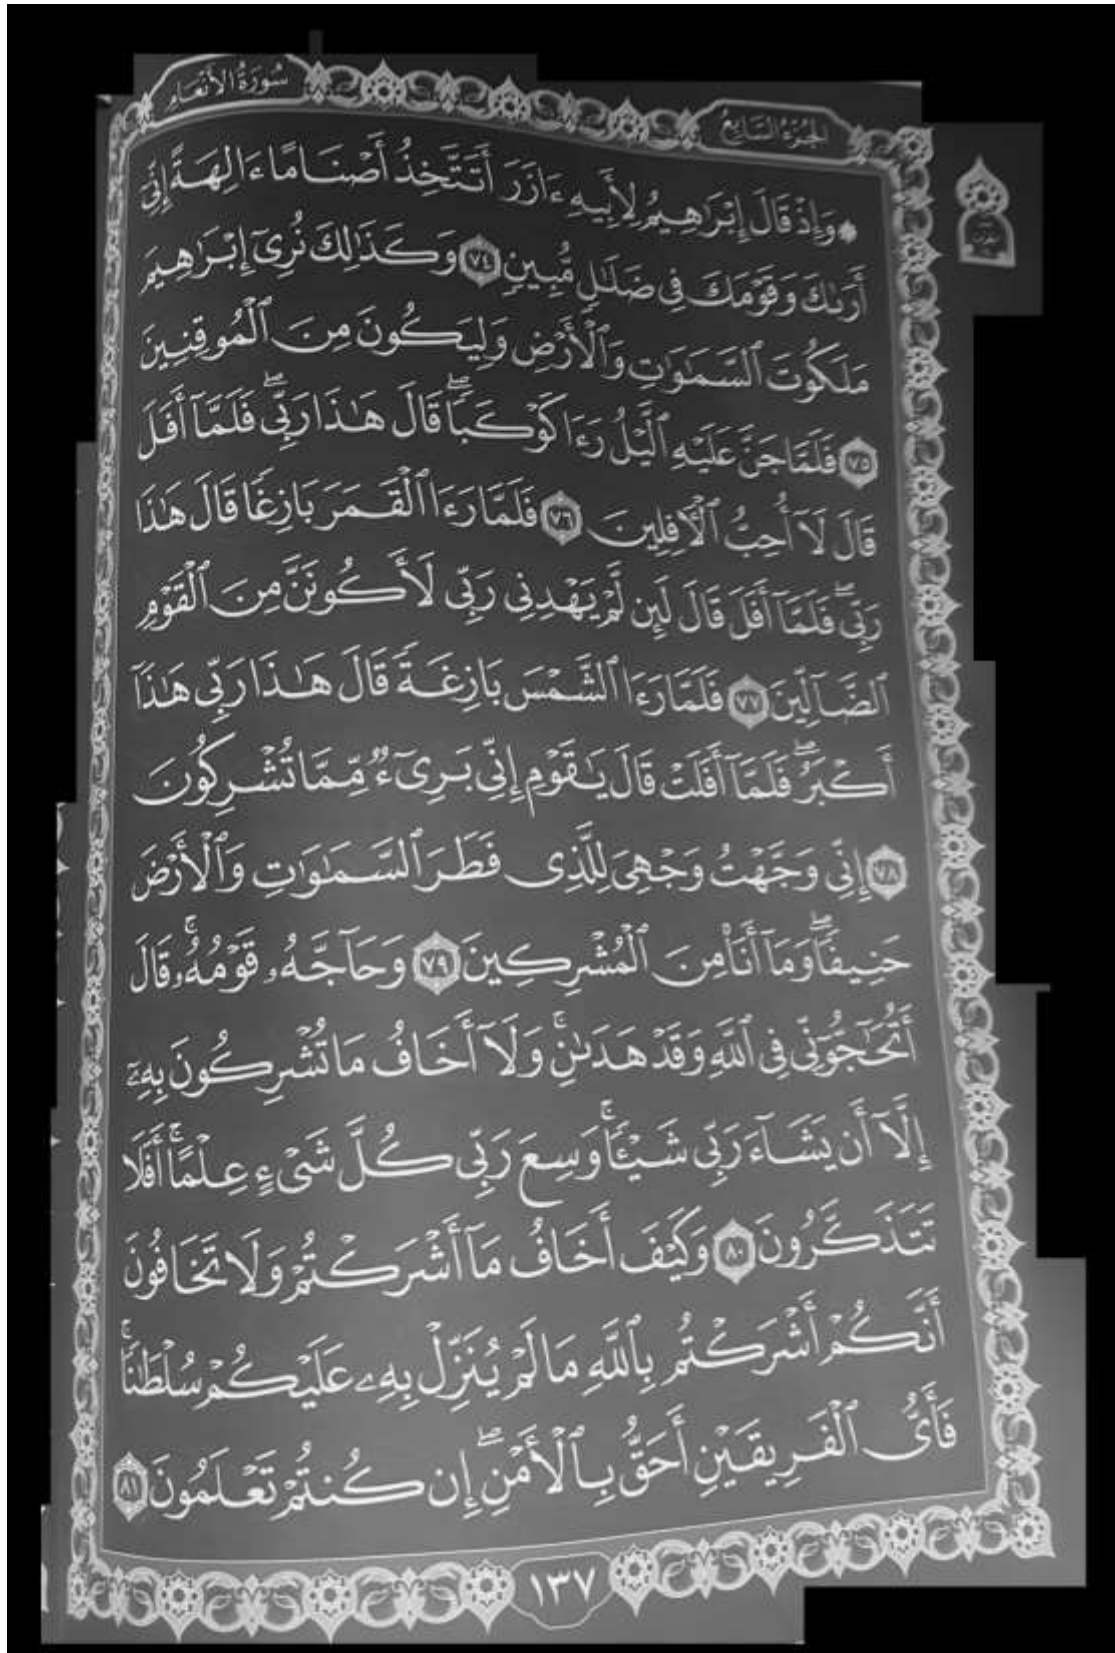 سُورَةُ الأَنْعَامِ
الجُزْءُ السَّابِعُ
۞ وَإِذْ قَالَ إِبْرَٰهِيمُ لِأَبِيهِ ءَازَرَ أَتَتَّخِذُ أَصْنَامًا ءَالِهَةً إِنِّىٓ
أَرَىٰكَ وَقَوْمَكَ فِى ضَلَٰلٍ مُّبِينٍ ٧٤ وَكَذَٰلِكَ نُرِىٓ إِبْرَٰهِيمَ
مَلَكُوتَ ٱلسَّمَٰوَٰتِ وَٱلْأَرْضِ وَلِيَكُونَ مِنَ ٱلْمُوقِنِينَ
٧٥ فَلَمَّا جَنَّ عَلَيْهِ ٱلَّيْلُ رَءَا كَوْكَبًا ۖ قَالَ هَٰذَا رَبِّى ۖ فَلَمَّآ أَفَلَ
قَالَ لَآ أُحِبُّ ٱلْءَافِلِينَ ٧٦ فَلَمَّا رَءَا ٱلْقَمَرَ بَازِغًا قَالَ هَٰذَا
رَبِّى ۖ فَلَمَّآ أَفَلَ قَالَ لَئِن لَّمْ يَهْدِنِى رَبِّى لَأَكُونَنَّ مِنَ ٱلْقَوْمِ
ٱلضَّآلِّينَ ٧٧ فَلَمَّا رَءَا ٱلشَّمْسَ بَازِغَةً قَالَ هَٰذَا رَبِّى هَٰذَآ
أَكْبَرُ ۖ فَلَمَّآ أَفَلَتْ قَالَ يَٰقَوْمِ إِنِّى بَرِىٓءٌ مِّمَّا تُشْرِكُونَ
٧٨ إِنِّى وَجَّهْتُ وَجْهِىَ لِلَّذِى فَطَرَ ٱلسَّمَٰوَٰتِ وَٱلْأَرْضَ
حَنِيفًا ۖ وَمَآ أَنَا۠ مِنَ ٱلْمُشْرِكِينَ ٧٩ وَحَآجَّهُۥ قَوْمُهُۥ ۚ قَالَ
أَتُحَٰٓجُّوٓنِّى فِى ٱللَّهِ وَقَدْ هَدَىٰنِ ۚ وَلَآ أَخَافُ مَا تُشْرِكُونَ بِهِۦٓ
إِلَّآ أَن يَشَآءَ رَبِّى شَيْـًٔا ۗ وَسِعَ رَبِّى كُلَّ شَىْءٍ عِلْمًا ۗ أَفَلَا
تَتَذَكَّرُونَ ٨٠ وَكَيْفَ أَخَافُ مَآ أَشْرَكْتُمْ وَلَا تَخَافُونَ
أَنَّكُمْ أَشْرَكْتُم بِٱللَّهِ مَا لَمْ يُنَزِّلْ بِهِۦ عَلَيْكُمْ سُلْطَٰنًا ۚ
فَأَىُّ ٱلْفَرِيقَيْنِ أَحَقُّ بِٱلْأَمْنِ ۖ إِن كُنتُمْ تَعْلَمُونَ ٨١
١٣٧